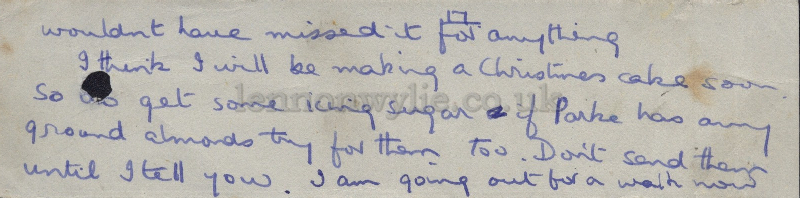 17
wouldnt have missed it for anything
I think I will be making a Christmas cake soon.
So do get some icing sugar & if Parke has any
ground almonds try for them too. Don't send them
until I tell you. I am going out for a walk now
lennonwylie.co.uk